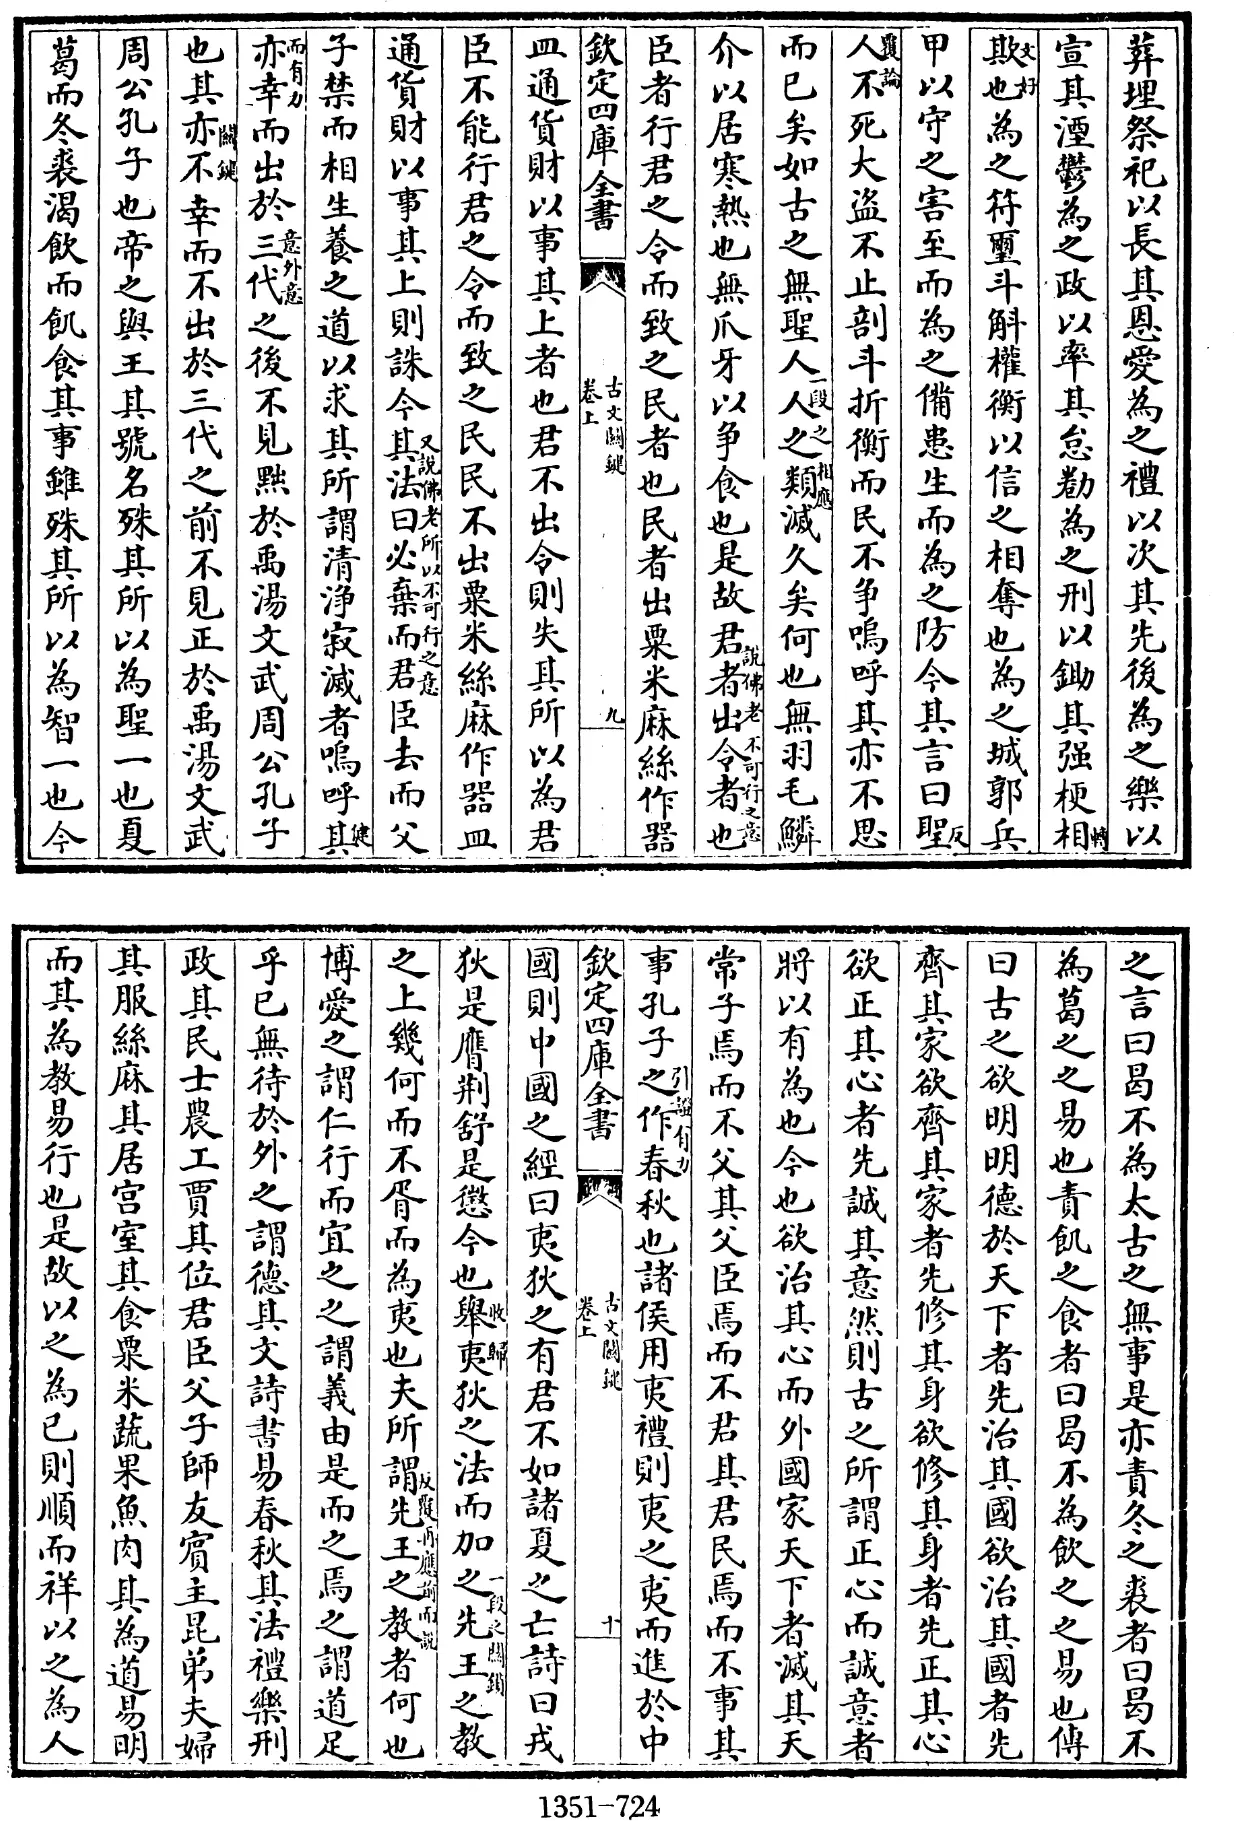 葬埋祭祀以長其恩愛為之禮以次其先後為之樂以
宣其湮鬱為之政以率其怠勌為之刑以鋤其强梗相
轉
欺也為之符璽斗斛權衡以信之相奪也為之城郭兵
文好
甲以守之害至而為之備患生而為之防今其言曰聖
反
人不死大盗不止剖斗折衡而民不争嗚呼其亦不思
覆論
而已矣如古之無聖人人之類滅久矣何也無羽毛鱗
一段之相應
介以居寒熱也無爪牙以争食也是故君者出令者也
說佛老不可行之意
臣者行君之令而致之民者也民者出粟米麻絲作器
欽定四庫全書
古文關鍵
卷上
九
皿通貨財以事其上者也君不出令則失其所以為君
臣不能行君之令而致之民民不出粟米絲麻作器皿
通貨財以事其上則誅今其法曰必棄而君臣去而父
又說佛老所以不可行之意
子禁而相生養之道以求其所謂清浄寂滅者嗚呼其
健
亦幸而出於三代之後不見黜於禹湯文武周公孔子
而有力
意外意
也其亦不幸而不出於三代之前不見正於禹湯文武
關鍵
周公孔子也帝之與王其號名殊其所以為聖一也夏
葛而冬裘渴飲而飢食其事雖殊其所以為智一也今
之言曰曷不為太古之無事是亦責冬之裘者曰曷不
為葛之之易也責飢之食者曰曷不為飲之之易也傳
曰古之欲明明德於天下者先治其國欲治其國者先
齊其家欲齊其家者先修其身欲修其身者先正其心
欲正其心者先誠其意然則古之所謂正心而誠意者
將以有為也今也欲治其心而外國家天下者滅其天
常子焉而不父其父臣焉而不君其君民焉而不事其
事孔子之作春秋也諸侯用夷禮則夷之夷而進於中
引證有力
欽定四庫全書
古文關鍵
卷上
十
國則中國之經曰夷狄之有君不如諸夏之亡詩曰戎
狄是膺荆舒是懲今也舉夷狄之法而加之先王之教
收歸
一段之關鎖
之上幾何而不胥而為夷也夫所謂先王之教者何也
反覆再應前而說
博愛之謂仁行而宜之之謂義由是而之焉之謂道足
乎已無待於外之謂德其文詩書易春秋其法禮樂刑
政其民士農工賈其位君臣父子師友賓主昆弟夫婦
其服絲麻其居宫室其食粟米蔬果魚肉其為道易明
而其為教易行也是故以之為已則順而祥以之為人
1351-724